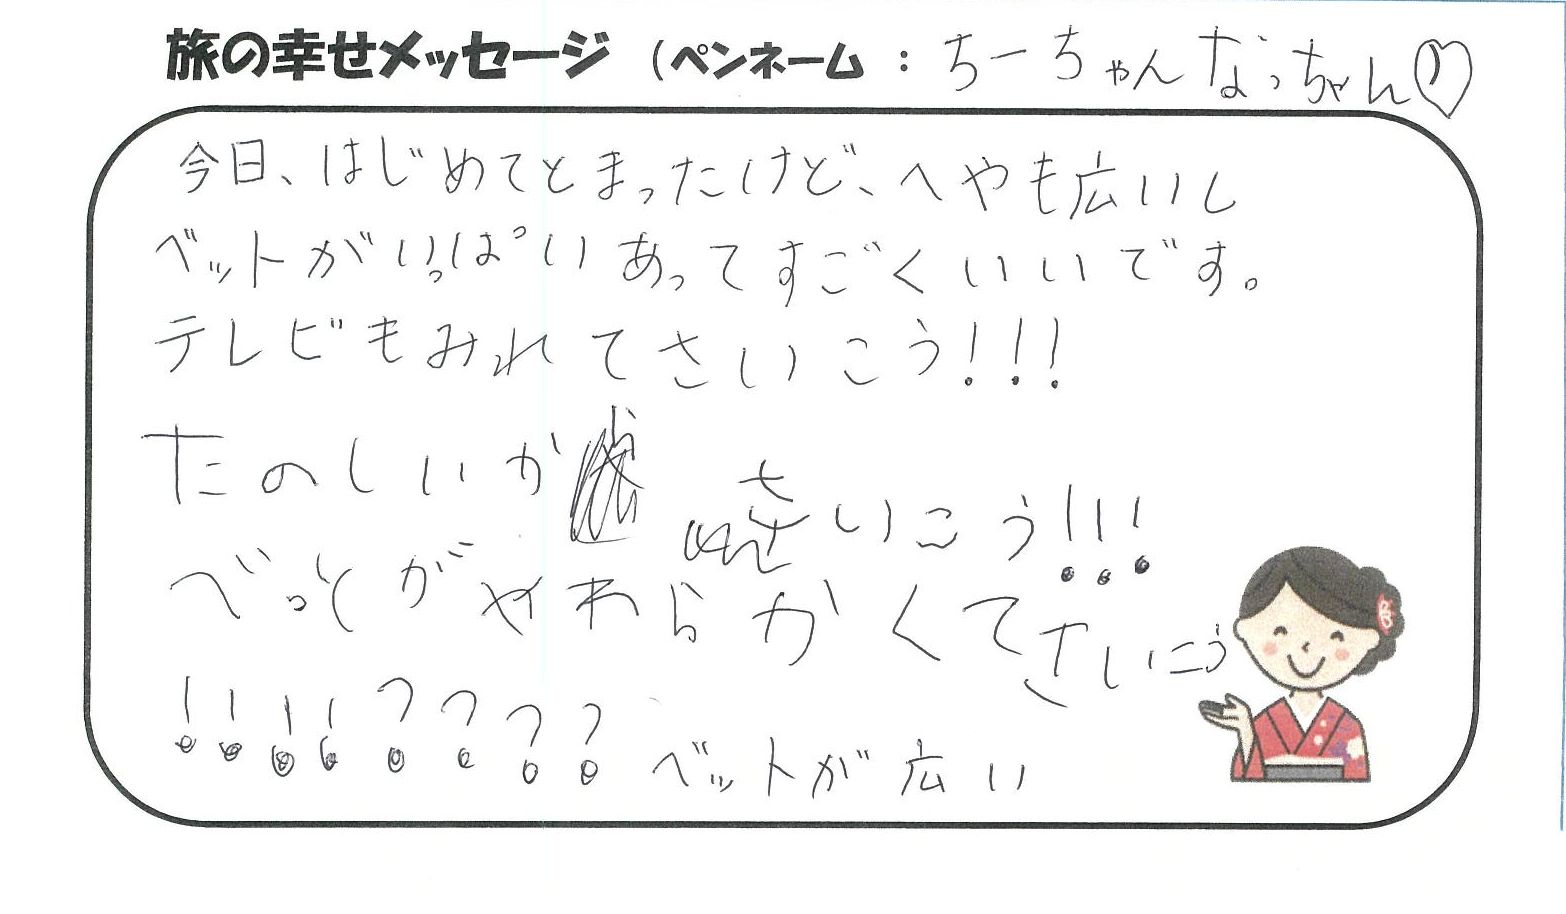 旅の幸せメッセージ (ペンネーム : ちーちゃんなっちゃん♡
今日、はじめてとまったけど、へやも広いし
ベットがいっぱいあってすごくいいです。
テレビもみれてさいこう!!!
たのしいが さいこう!!!
べっとがやわらかくてさいこう
!!!!???? ベットが広い